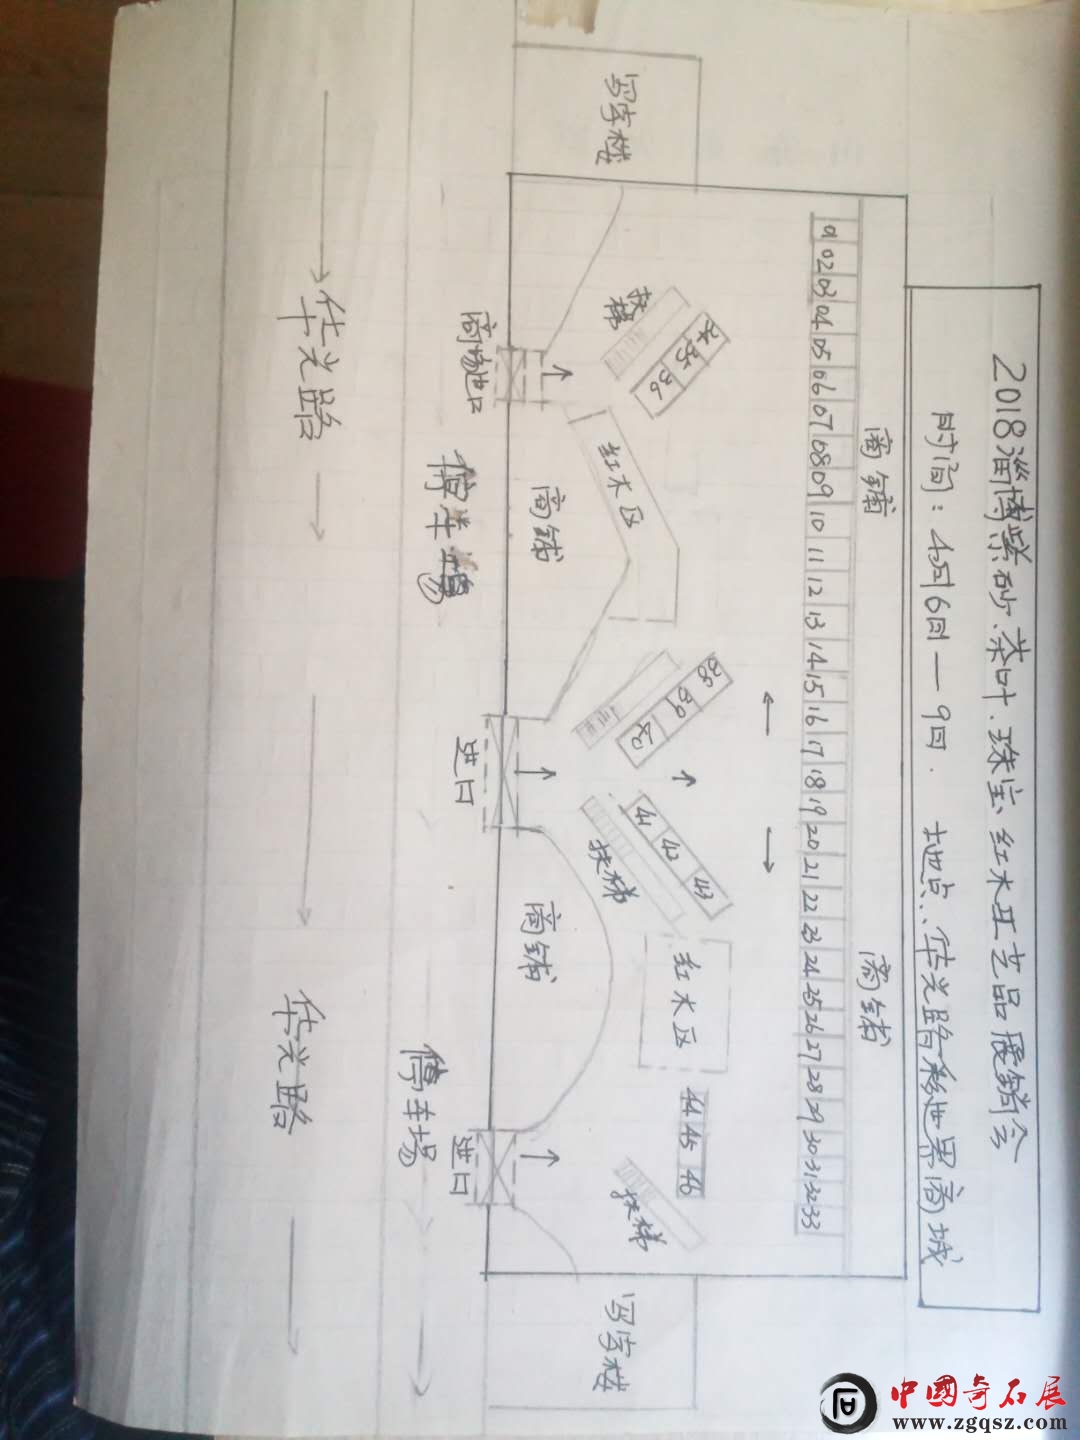 2018淄博紫砂.茶叶.珠宝红木工艺品展销会
时间：4月6日—9日. 地点：华光路彩世界商城
商铺 商铺
01 02 03 04 05 06 07 08 09 10 11 12 13 14 15 16 17 18 19 20 21 22 23 24 25 26 27 28 29 30 31 32 33
写字楼
扶梯
35 36
红木区
39
41 42 43
扶梯
红木区
44 45 46
扶梯
写字楼
商铺
商铺
商场进口
进口
进口
停车场
停车场
华光路
华光路
中國奇石展
www.zgqsz.com